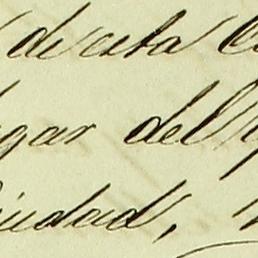 de esta
gar del
iudad,